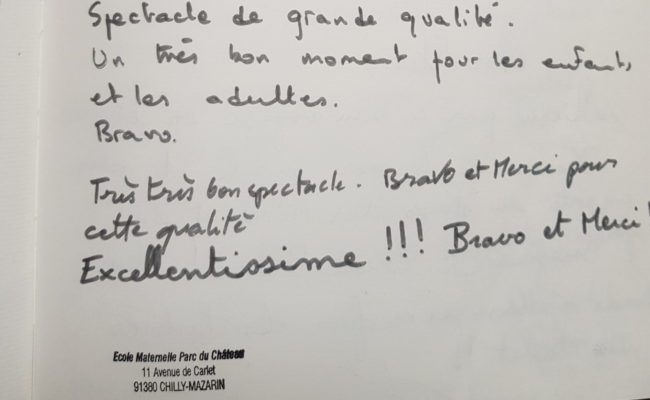 Spectacle de grande qualité.
Un très bon moment pour les enfants
et les adultes.
Bravo.
Très très bon spectacle. Bravo et Merci pour
cette qualité
Excellentissime !!! Bravo et Merci !
Ecole Maternelle Parc du Château
11 Avenue de Carlet
91380 CHILLY-MAZARIN